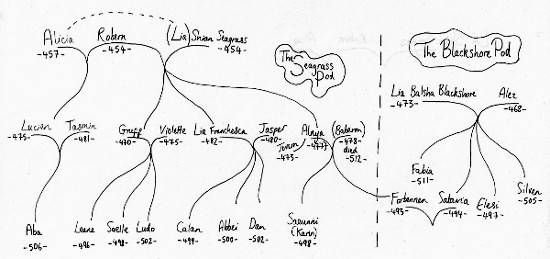 Alicia
-457-
Robern
-454-
(Lia) Shian Seagrass
-454-
The
Seagrass
Pod
The Blackshore Pod
Lia Balsha Blackshore
-473-
Alez
-468-
Lucian
-475-
Tasmin
-481-
Gruff
-470-
Violette
-475-
Lia Franchesca
-482-
Jasper
-480-
Alaya
-477-
Jevan
-473-
(Babarin)
-478-
died
-512-
Fabia
-511-
Silven
-505-
Forbannen
-495-
Satavia
-494-
Elesi
-497-
Aba
-506-
Leane
-496-
Saelle
-498-
Ludo
-502-
Calan
-499-
Abbei
-500-
Dan
-502-
Saeunni
(Kann)
-498-